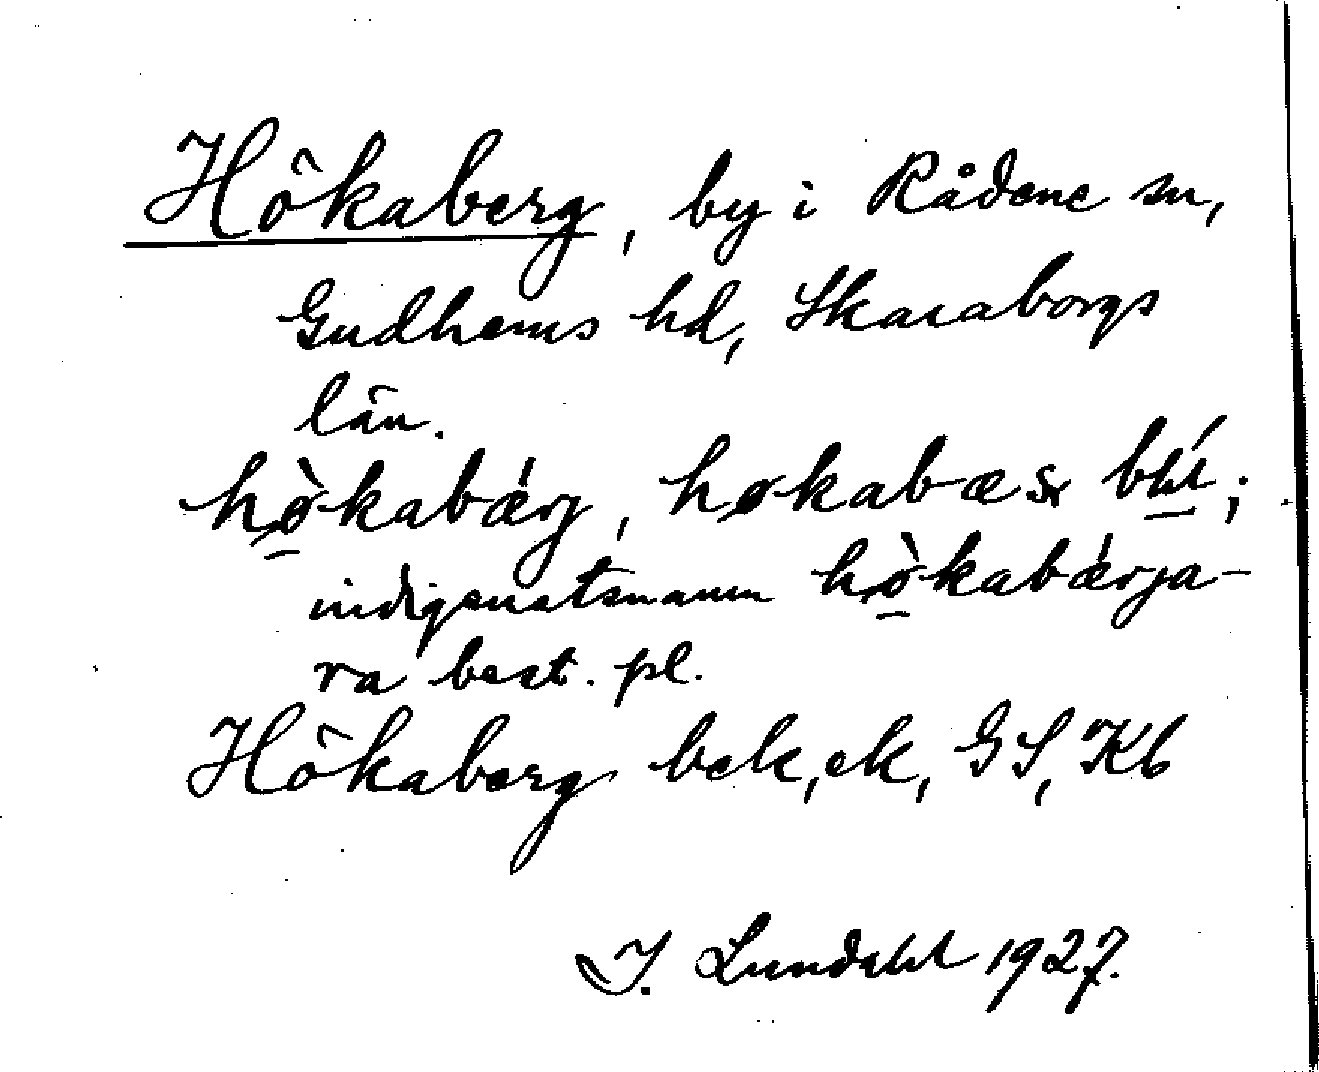 Hökaberg, by i Rådene sn,
Gudhems hd, Skaraborgs
län.
hø̀kabǽrj, høkabæ
indigenatsnamn hø̀kabǽrja-
ra best. pl.
Hökaberg bek, ek, GS, Kb
I. Lundahl 1927.